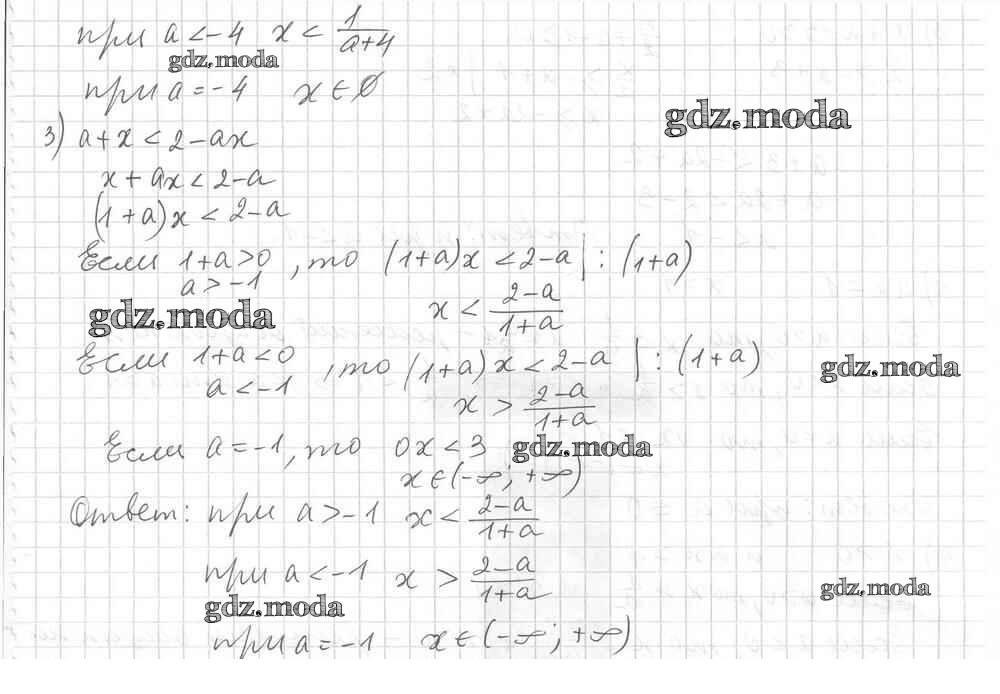 при a < -4 x < 1/(a+4)
gdz.moda
при a = -4 x ∈ ∅
gdz.moda
3) a + x < 2 - ax
x + ax < 2 - a
(1 + a)x < 2 - a
Если 1+a>0, то (1+a)x < 2-a | : (1+a)
a > -1
x < (2-a)/(1+a)
gdz.moda
Если 1+a<0, то (1+a)x < 2-a | : (1+a)
a < -1
gdz.moda
x > (2-a)/(1+a)
Если a = -1, то 0x < 3
gdz.moda
x ∈ (-∞; +∞)
Ответ: при a > -1 x < (2-a)/(1+a)
при a < -1 x > (2-a)/(1+a)
gdz.moda
gdz.moda
при a = -1 x ∈ (-∞; +∞)